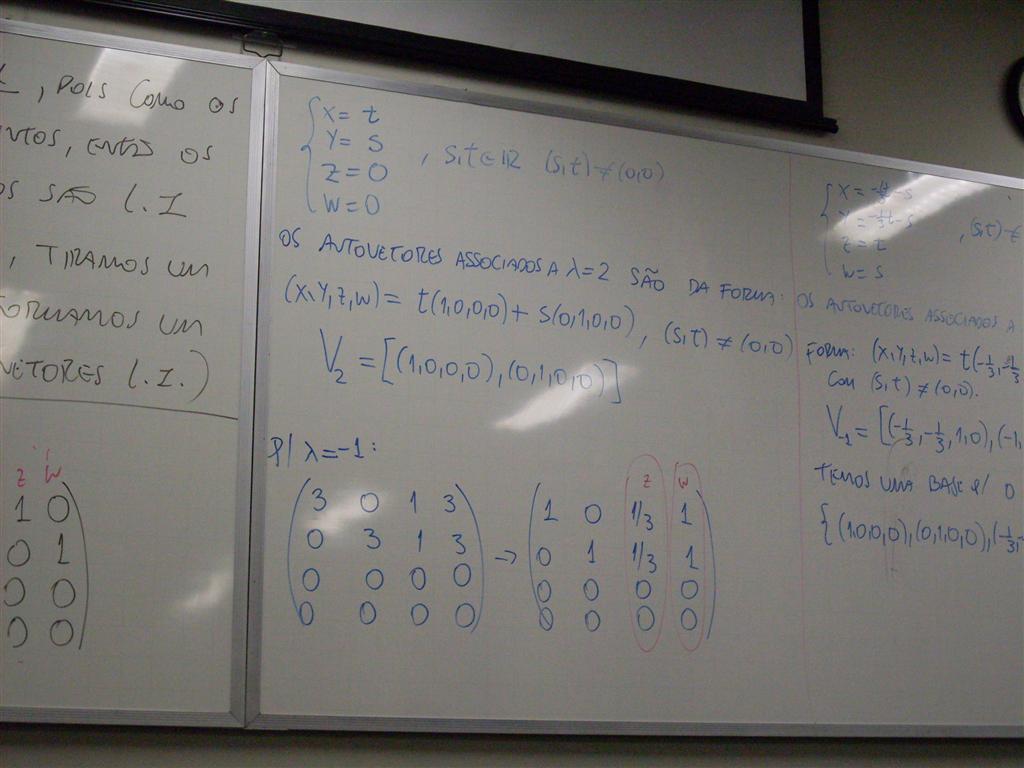 , POIS COMO OS
NTOS, ENTÃO OS
OS SÃO L.I
, TIRAMOS UM
FORMAMOS UM
VETORES L.I.)
z w
1 0
0 1
0 0
0 0
x = t
y = s
z = 0
w = 0
, s,t ∈ IR (s,t) ≠ (0,0)
OS AUTOVETORES ASSOCIADOS A λ=2 SÃO DA FORMA:
(x,y,z,w) = t(1,0,0,0) + s(0,1,0,0), (s,t) ≠ (0,0)
V₂ = [(1,0,0,0),(0,1,0,0)]
P/ λ=-1:
z w
3 0 1 3 1 0 1/3 1
0 3 1 3 → 0 1 1/3 1
0 0 0 0 0 0 0 0
0 0 0 0 0 0 0 0
z = t
w = s
, (s,t) ≠
OS AUTOVETORES ASSOCIADOS A
FORMA: (x,y,z,w) = t(-1/3,-1/3
COM (s,t) ≠ (0,0).
V₋₁ = [(-1/3,-1/3,1,0),(-1,
TEMOS UMA BASE P/ O
{(1,0,0,0),(0,1,0,0),(-1/3,-